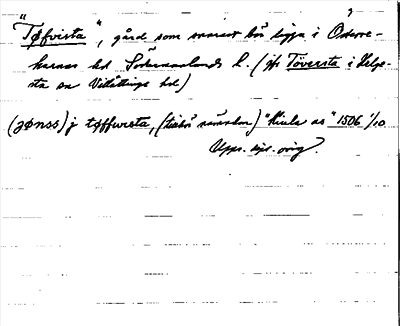 "Tøfvesta", gård som snarast bör ligga i Österre-
karnas hd Södermanlands l. (jfr Töversta i Helge-
sta sn Villåttinge hd)
(jønss) j tøffwesta, "Kiula as" 1506 1/10
Upps. dipl. orig.